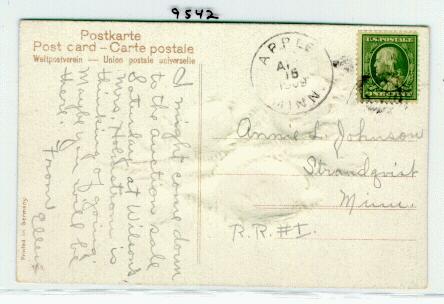 9542
Postkarte
Post card – Carte postale
Weltpostverein — Union postale universelle
APPLE
15
1909
MINN.
U.S. POSTAGE
I might come down
to the auction sale
Saturday at Wilson's,
Mrs. is
thinking of going.
Maybe you will be
there.
From Ellen
Annie L. Johnson
Strandquist
Minn.
R.R. #1.
Printed in Germany